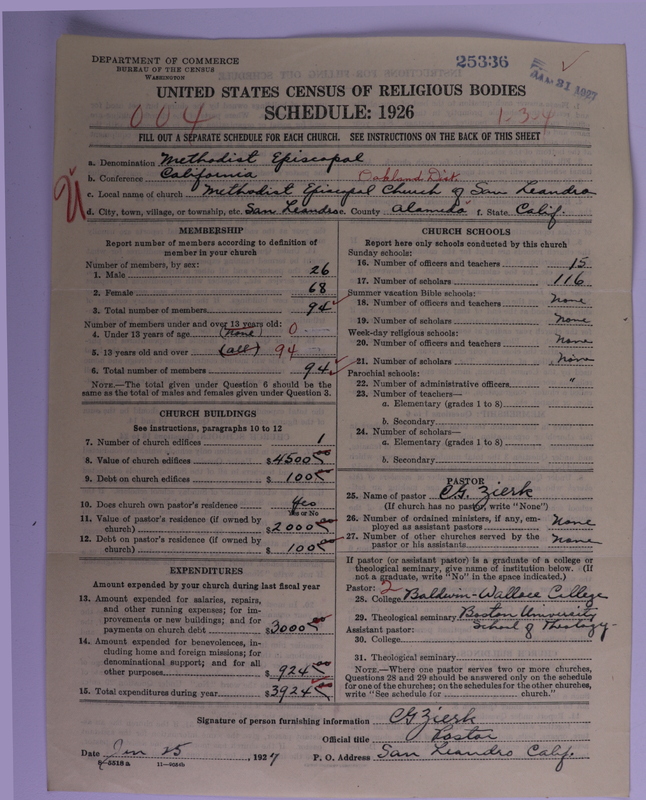 DEPARTMENT OF COMMERCE
BUREAU OF THE CENSUS
WASHINGTON
25336
JAN 31 1927
UNITED STATES CENSUS OF RELIGIOUS BODIES
SCHEDULE: 1926
004
1-3-4
FILL OUT A SEPARATE SCHEDULE FOR EACH CHURCH. SEE INSTRUCTIONS ON THE BACK OF THIS SHEET
a. Denomination Methodist Episcopal
b. Conference California Oakland Dist.
c. Local name of church Methodist Episcopal Church of San Leandro
d. City, town, village, or township, etc. San Leandro e. County Alameda f. State Calif.
MEMBERSHIP
Report number of members according to definition of
member in your church
Number of members, by sex:
1. Male 26
2. Female 68
3. Total number of members 94
Number of members under and over 13 years old:
4. Under 13 years of age (None) 0
5. 13 years old and over (all) 94
6. Total number of members 94
NOTE.—The total given under Question 6 should be the
same as the total of males and females given under Question 3.
CHURCH BUILDINGS
See instructions, paragraphs 10 to 12
7. Number of church edifices 1
8. Value of church edifices $4500 00
9. Debt on church edifices $ 100 00
10. Does church own pastor's residence Yes
Yes or No
11. Value of pastor's residence (if owned by
church) $2000 00
12. Debt on pastor's residence (if owned by
church) $ 100 00
EXPENDITURES
Amount expended by your church during last fiscal year
13. Amount expended for salaries, repairs,
and other running expenses; for im-
provements or new buildings; and for
payments on church debt $3000 00
14. Amount expended for benevolences, in-
cluding home and foreign missions; for
denominational support; and for all
other purposes $ 924 00
15. Total expenditures during year $3924 00
CHURCH SCHOOLS
Report here only schools conducted by this church
Sunday schools:
16. Number of officers and teachers 15
17. Number of scholars 116
Summer vacation Bible schools:
18. Number of officers and teachers None
19. Number of scholars None
Week-day religious schools:
20. Number of officers and teachers None
21. Number of scholars None
Parochial schools:
22. Number of administrative officers "
23. Number of teachers—
a. Elementary (grades 1 to 8)
b. Secondary
24. Number of scholars—
a. Elementary (grades 1 to 8)
b. Secondary
PASTOR
25. Name of pastor C.G. Zierk
(If church has no pastor, write "None")
26. Number of ordained ministers, if any, em-
ployed as assistant pastors None
27. Number of other churches served by the
pastor or his assistants None
If pastor (or assistant pastor) is a graduate of a college or
theological seminary, give name of institution below. (If
not a graduate, write "No" in the space indicated.)
Pastor: 2
28. College Baldwin-Wallace College
29. Theological seminary Boston University
School of Theology
Assistant pastor:
30. College
31. Theological seminary
NOTE.—Where one pastor serves two or more churches,
Questions 28 and 29 should be answered only on the schedule
for one of the churches; on the schedules for the other churches,
write "See schedule for church."
Signature of person furnishing information CG Zierk
Official title Pastor
Date Jan 25, 1927 P. O. Address San Leandro Calif.
8-5518 a 11-9554b